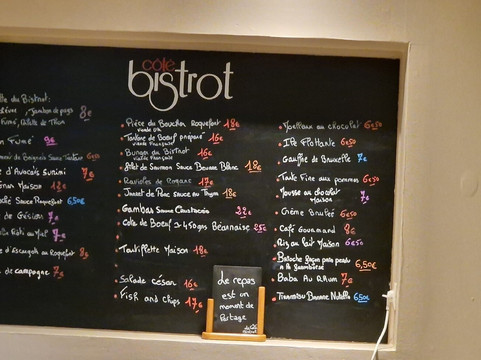 côté
bistrot
du Bistrot:
Jambon de pays 8€
Fumé, de Thon
Fumé 9€
de Beignets Sauce Tartare 6€50
d'Avocats Surimi 7€
Maison 12€
Sauce Roquefort 6,50€
de Gésiers 7€
Roti au Miel 7€
d'escargots au Roquefort 8€
de campagne 7€
Pièce du Boucher Roquefort 18€
viande
Tartare de Boeuf préparé 16€
viande Française
Burger du Bistrot 16€
viande Française
Filet de Saumon Sauce Beurre Blanc 18€
Ravioles de Romans 17€
Jarret de Porc sauce au Thym 18€
Gambas Sauce 22€
Cote de Boeuf 450grs Béarnaise 25€
Tartiflette Maison 18€
Salade César 16€
Fish and Chips 17€
Le repas
est un
moment de
Partage
Moelleux au chocolat 6€50
Ile Flottante 6€50
Gauffre de Bruxelle 7€
Tarte Fine aux pommes 6€50
Mousse au chocolat
Maison 7€
Crème Brulée 6€50
Café Gourmand 8€
Riz au lait Maison 6€50
Brioche façon pain perdu
à la framboise 6,50€
Baba Au Rhum 7€
Tiramisu Banane Nutella 6,50€